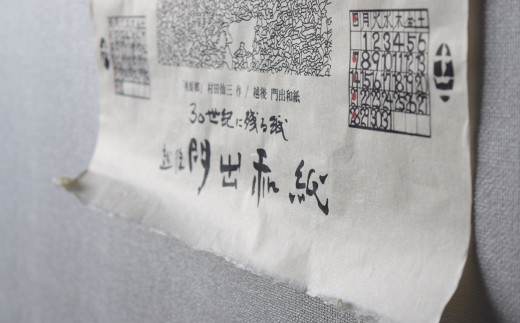 日月火水木金土
1 2 3 4 5 6
7 8 9 10 11 12 13
14 15 16 17 18 19 20
21 22 23 24 25 26 27
28 29 30 31
作 / 越後 門出和紙
30世紀に残る紙
越後 門出和紙